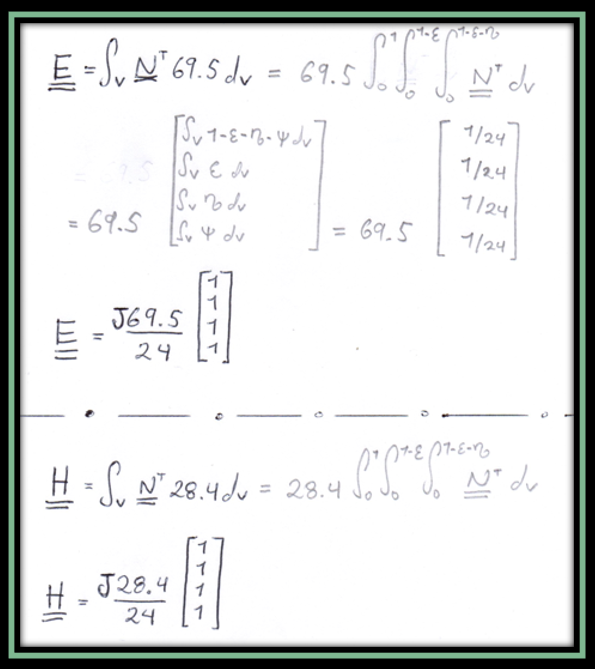 E = ∫v Nᵀ 69.5 dv = 69.5 ∫₀¹ ∫₀¹⁻ᵋ ∫₀¹⁻ᵋ⁻ⁿ Nᵀ dv
= 69.5 [∫v 1-ε-η-ψ dv
∫v ε dv
∫v η dv
∫v ψ dv] = 69.5 [1/24
1/24
1/24
1/24]
E = J69.5/24 [1
1
1
1]
H = ∫v Nᵀ 28.4 dv = 28.4 ∫₀¹ ∫₀¹⁻ᵋ ∫₀¹⁻ᵋ⁻ⁿ Nᵀ dv
H = J28.4/24 [1
1
1
1]